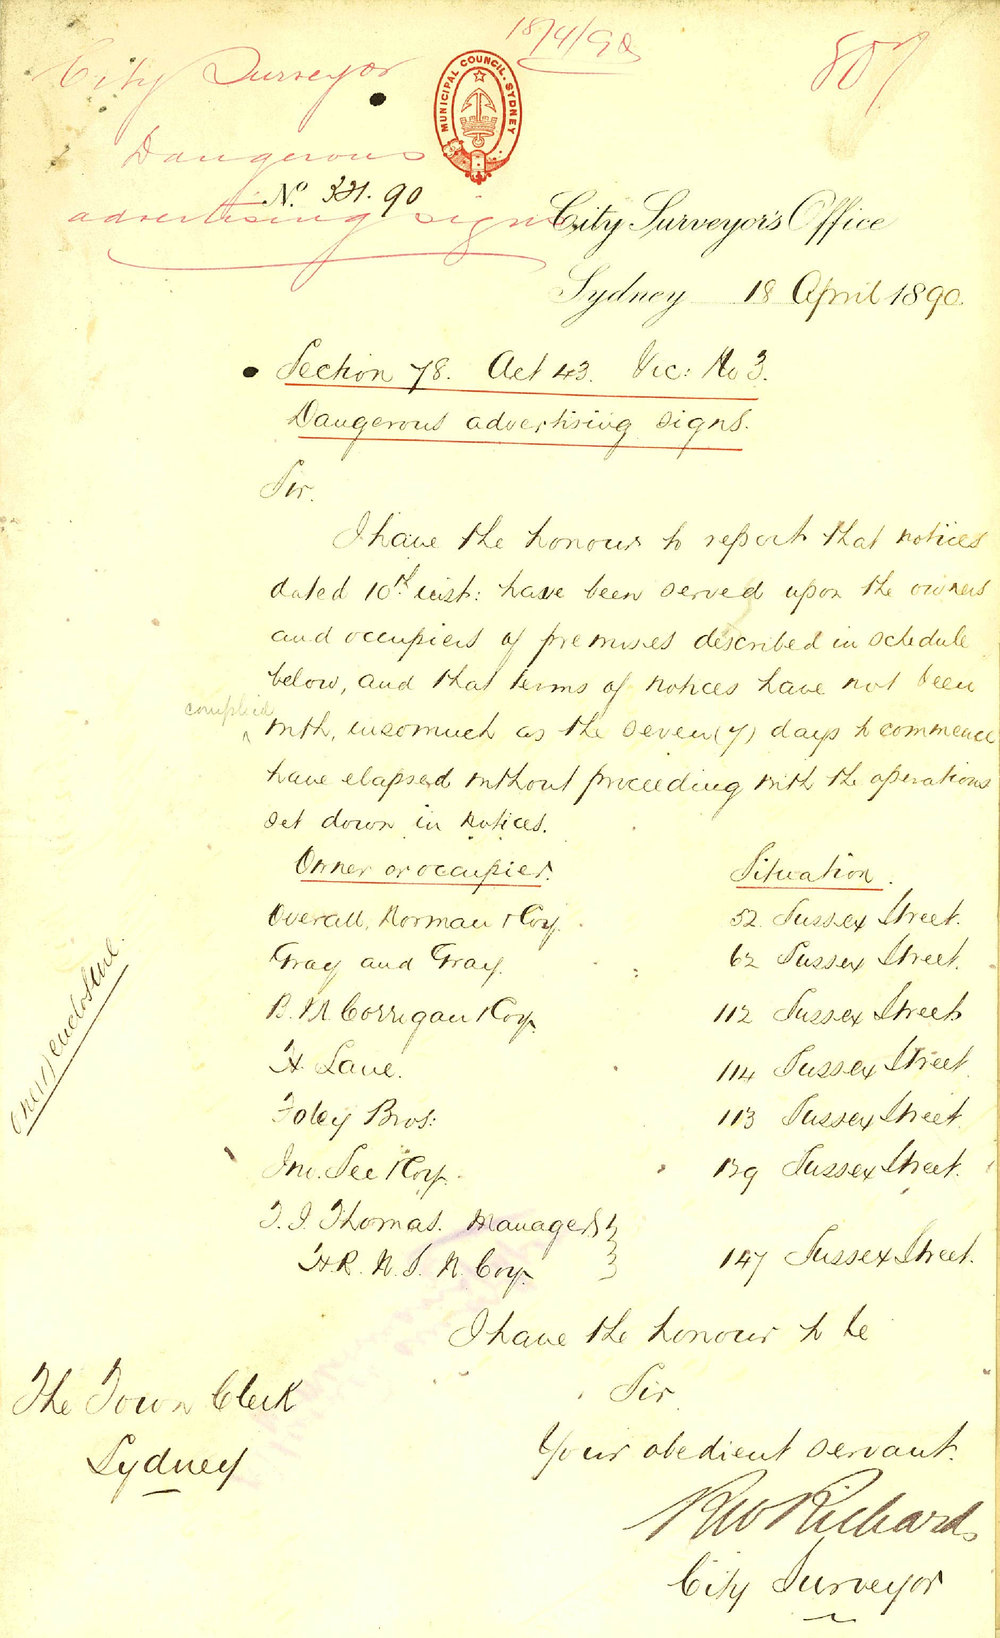 18/4/90
807
City Surveyor
Dangerous
advertising signs
MUNICIPAL COUNCIL · SYDNEY
No. 331.90
City Surveyor's Office
Sydney 18 April 1890.
Section 78. Act 43. Vic: No 3.
Dangerous advertising signs.
Sir.
I have the honour to report that notices
dated 10th inst: have been served upon the owners
and occupiers of premises described in schedule
below, and that terms of notices have not been
complied
with, insomuch as the seven (7) days to commence
have elapsed without proceeding with the operations
set down in notices.
Owner or occupier. Situation.
Overall, Norman & Coy. 52 Sussex Street.
Gray and Gray. 62 Sussex Street.
B. M. Corrigan & Coy. 112 Sussex Street
H. Lane. 114 Sussex Street.
Foley Bros: 113 Sussex Street.
Jno. See & Coy. 129 Sussex Street.
F. J. Thomas. Manager }
H. R. N. S. N. Coy. } 147 Sussex Street.
One (1) enclosure.
I have the honour to be
Sir
Your obedient servant.
The Town Clerk
Sydney
RW Richards
City Surveyor